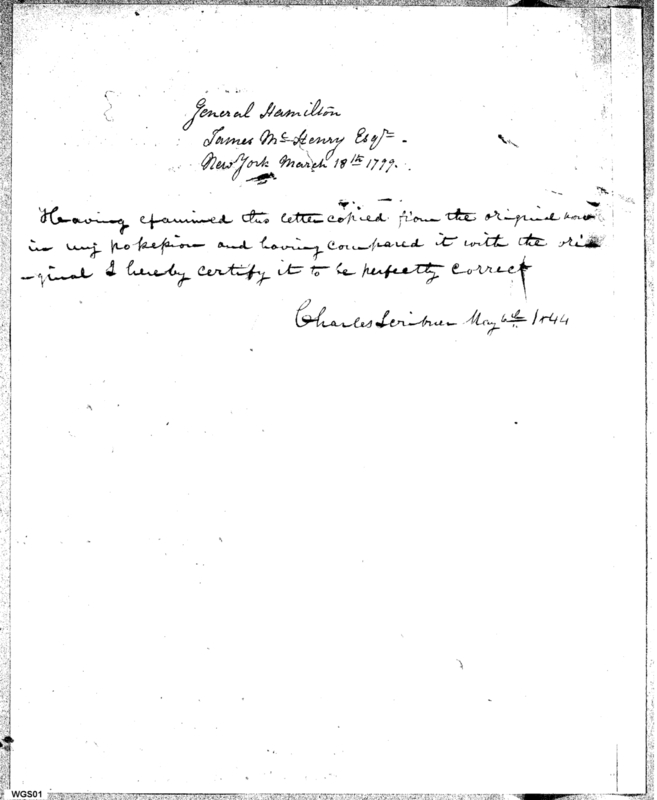 General Hamilton
James McHenry Esqr.
New York March 18th 1799.
Heaving examined this letter copied from the original now
in my possession and having compared it with the ori
-ginal I hereby certify it to be perfectly correct
Charles Scribner May 6th 1844
WGS01